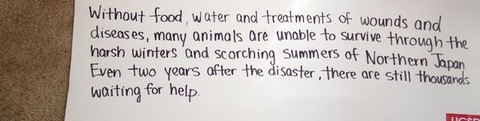 Without food, water and treatments of wounds and
diseases, many animals are unable to survive through the
harsh winters and scorching summers of Northern Japan.
Even two years after the disaster, there are still thousands
waiting for help.